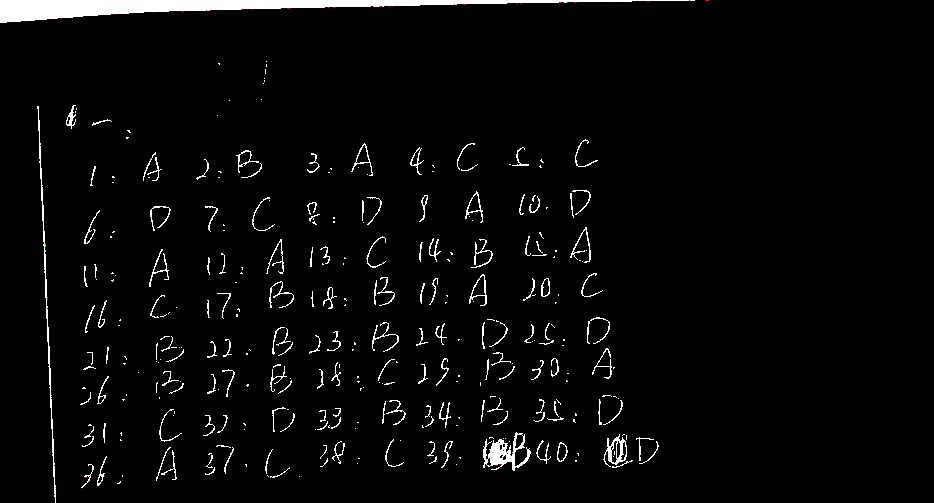 一:
1: A 2: B 3. A 4. C 5: C
6. D 7. C 8. D 9 A 10. D
11: A 12. A 13: C 14. B 15. A
16. C 17. B 18. B 19. A 20. C
21: B 22. B 23. B 24. D 25. D
26. B 27. B 28: C 29. B 30. A
31. C 32. D 33. B 34. B 35. D
36. A 37. C 38. C 39. B 40. D